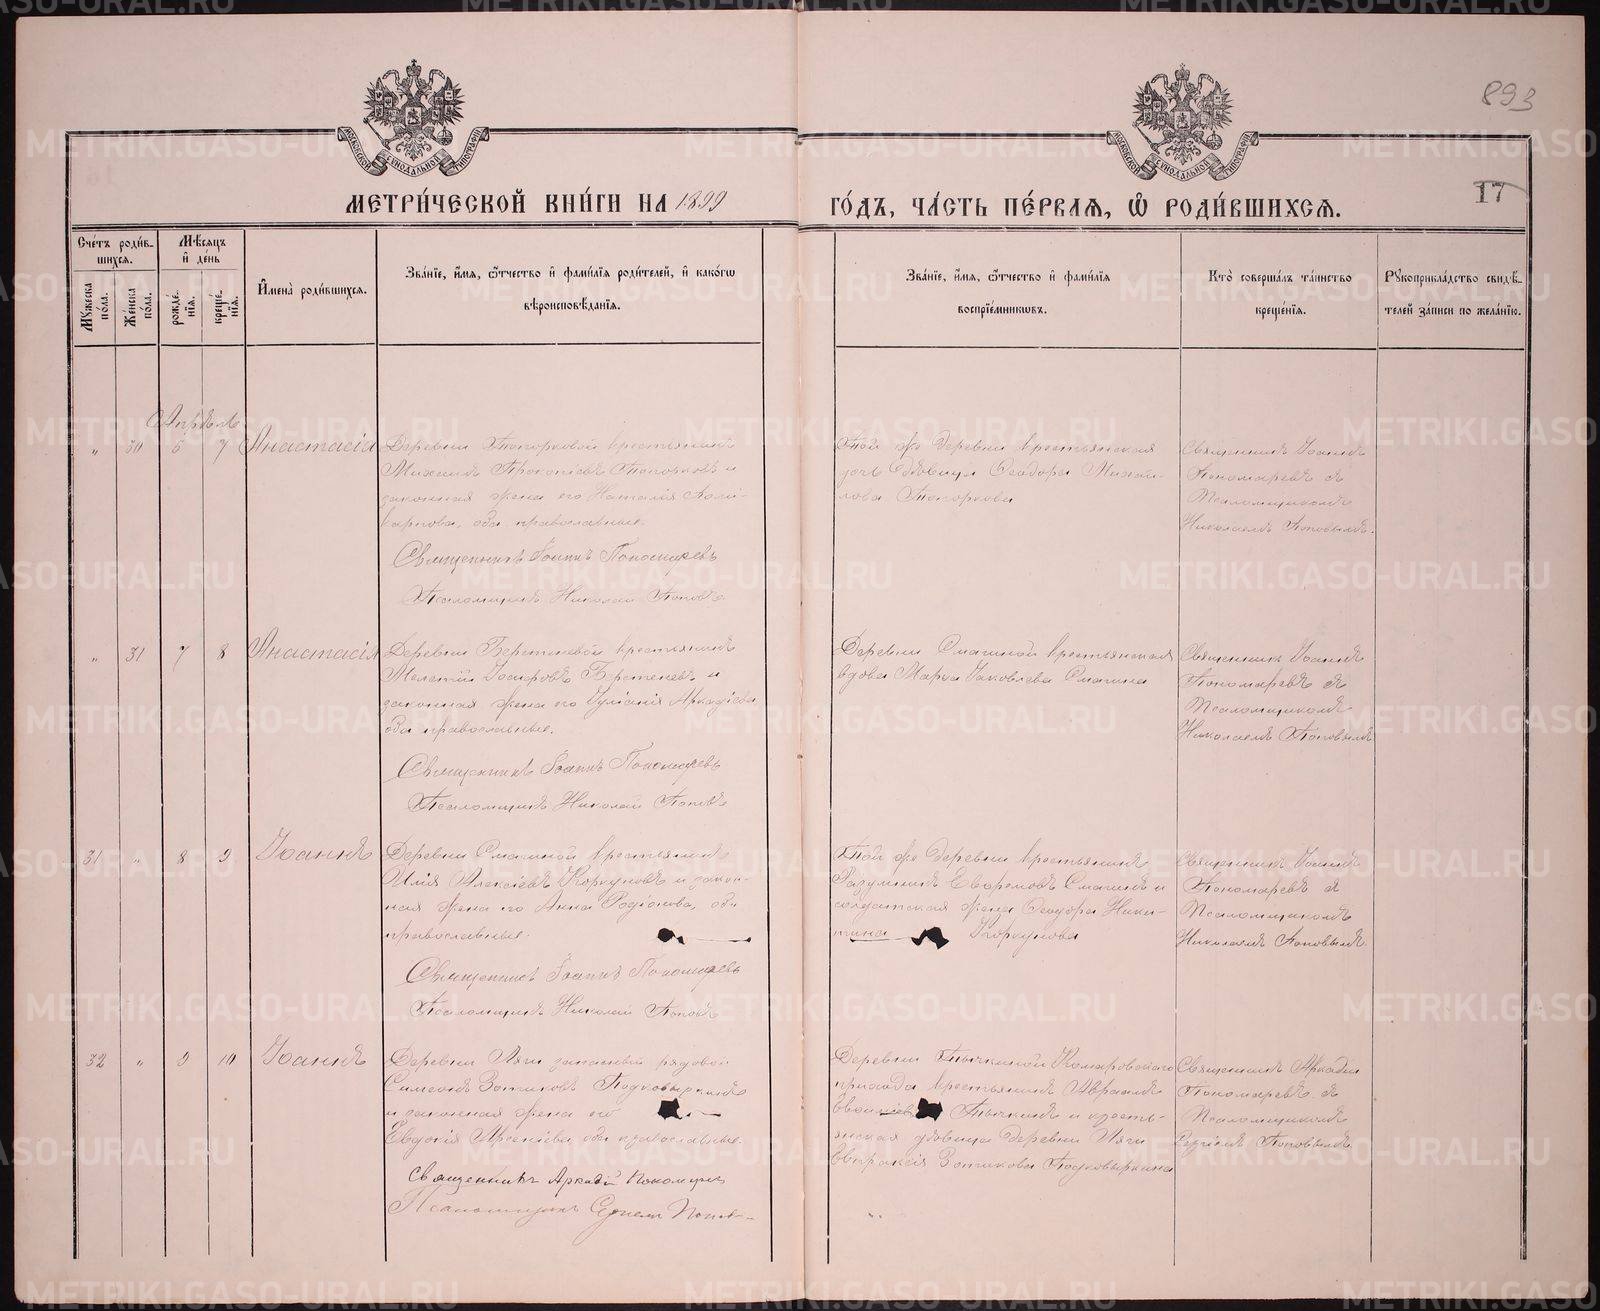 893
17
МЕТРИ́ЧЕСКОЙ КНИ́ГИ НА 1899
ГО́ДЪ, ЧА́СТЬ ПЕ́РВАЯ, Ѽ РОДИ́ВШИХСЯ.
Сче́тъ роди́в-
шихся.
Мужеска по́ла.
Же́нска по́ла.
Мѣ́сяцъ
и҆ де́нь
рожде́-
нїя.
креще́-
нїя.
И҆мена̀ роди́вшихся.
Зва́нїе, и҆́мя, ѻ҆́тчество и҆ фами́лїя роди́телей, и҆ како́гѡ
вѣроисповѣ́данїя.
Зва́нїе, и҆́мя, ѻ҆́тчество и҆ фами́лїя
воспрїе́мникѡвъ.
Кто̀ соверша́лъ та́инство
креще́нїя.
Рукоприкла́дство свидѣ́-
телей за́писи по жела́нїю.
Апрѣль
„ 30 5 7 Анастасія
Деревни Топорковой крестьянинъ
Михаилъ Прокопіевъ Топорковъ и
законная жена его Наталія Поли-
карпова, оба православные.
Священникъ Іоаннъ Пономаревъ
Псаломщикъ Николай Поповъ
Той же деревни крестьянская
дочь девица Ѳеодора Михай-
лова Топоркова
Священникъ Іоаннъ
Пономаревъ съ
Псаломщикомъ
Николаемъ Поповымъ.
„ 31 7 8 Анастасія
Деревни Берстеневой крестьянинъ
Мелетій Іосифовъ Берстеневъ и
законная жена его Іуліанія Аркадіева
оба православные.
Священникъ Іоаннъ Пономаревъ
Псаломщикъ Николай Поповъ
Деревни Смагиной крестьянская
вдова Марѳа Іаковлева Смагина
Священникъ Іоаннъ
Пономаревъ съ
Псаломщикомъ
Николаемъ Поповымъ
31 „ 8 9 Іоаннъ
Деревни Смагиной крестьянинъ
Илія Алексіевъ Коркуновъ и закон-
ная жена его Анна Родіонова, оба
православные.
Священникъ Іоаннъ Пономаревъ
Псаломщикъ Николай Поповъ
Той же деревни крестьянинъ
Разумникъ Евфремовъ Смагинъ и
солдатская жена Ѳеодора Ники-
тина Коркунова
Священникъ Іоаннъ
Пономаревъ съ
Псаломщикомъ
Николаемъ Поповымъ
32 „ 9 10 Іоаннъ
Деревни Ляги запасный рядовой
Симеонъ Зотиковъ Подковыркинъ
и законная жена его
Евдокія Арсеніева оба православные
Священникъ Аркадій Пономаревъ
Псаломщикъ Сергій Поповъ
Деревни Тычкиной Комаровскаго
прихода крестьянинъ Авраамъ
Тычкинъ и кресть-
янская девица деревни Ляги
Евпраксія Зотикова Подковыркина
Священникъ Аркадій
Пономаревъ съ
Псаломщикомъ
Сергіемъ Поповымъ
METRIKI.GASO-URAL.RU